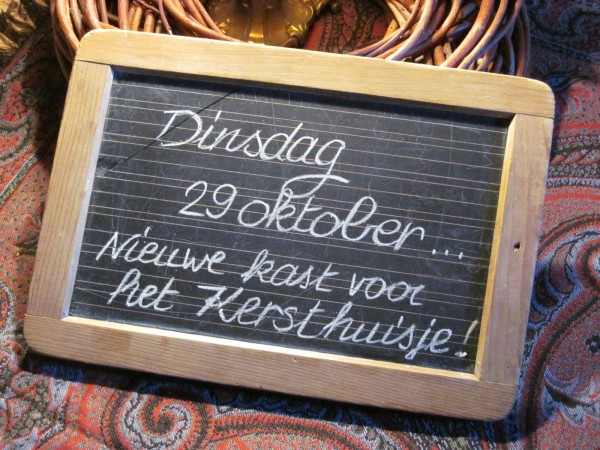 Dinsdag
29 oktober...
Nieuwe kast voor
het Kersthuisje!